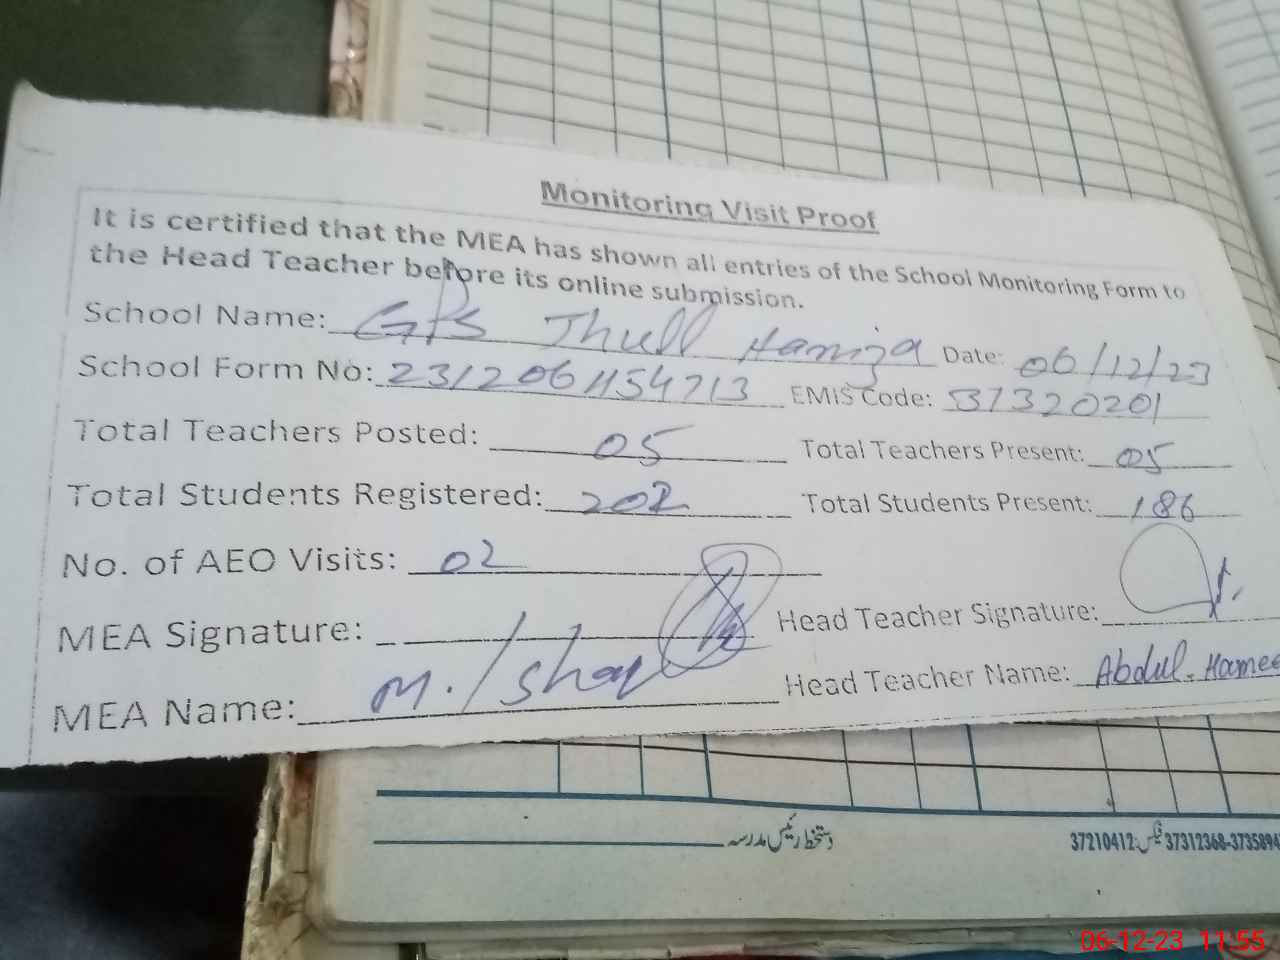 Monitoring Visit Proof
It is certified that the MEA has shown all entries of the School Monitoring Form to
the Head Teacher before its online submission.
School Name: GPS Thull Hamza Date: 06/12/23
School Form No: 231206 1154713 EMIS Code: 37320201
Total Teachers Posted: 05 Total Teachers Present: 05
Total Students Registered: 202 Total Students Present: 186
No. of AEO Visits: 02
MEA Signature: Head Teacher Signature:
MEA Name: M. Head Teacher Name: Abdul. Hamee
دستخط رئیس مدرسہ
37210412: فیکس 37312368-3735894
06-12-23 11:55